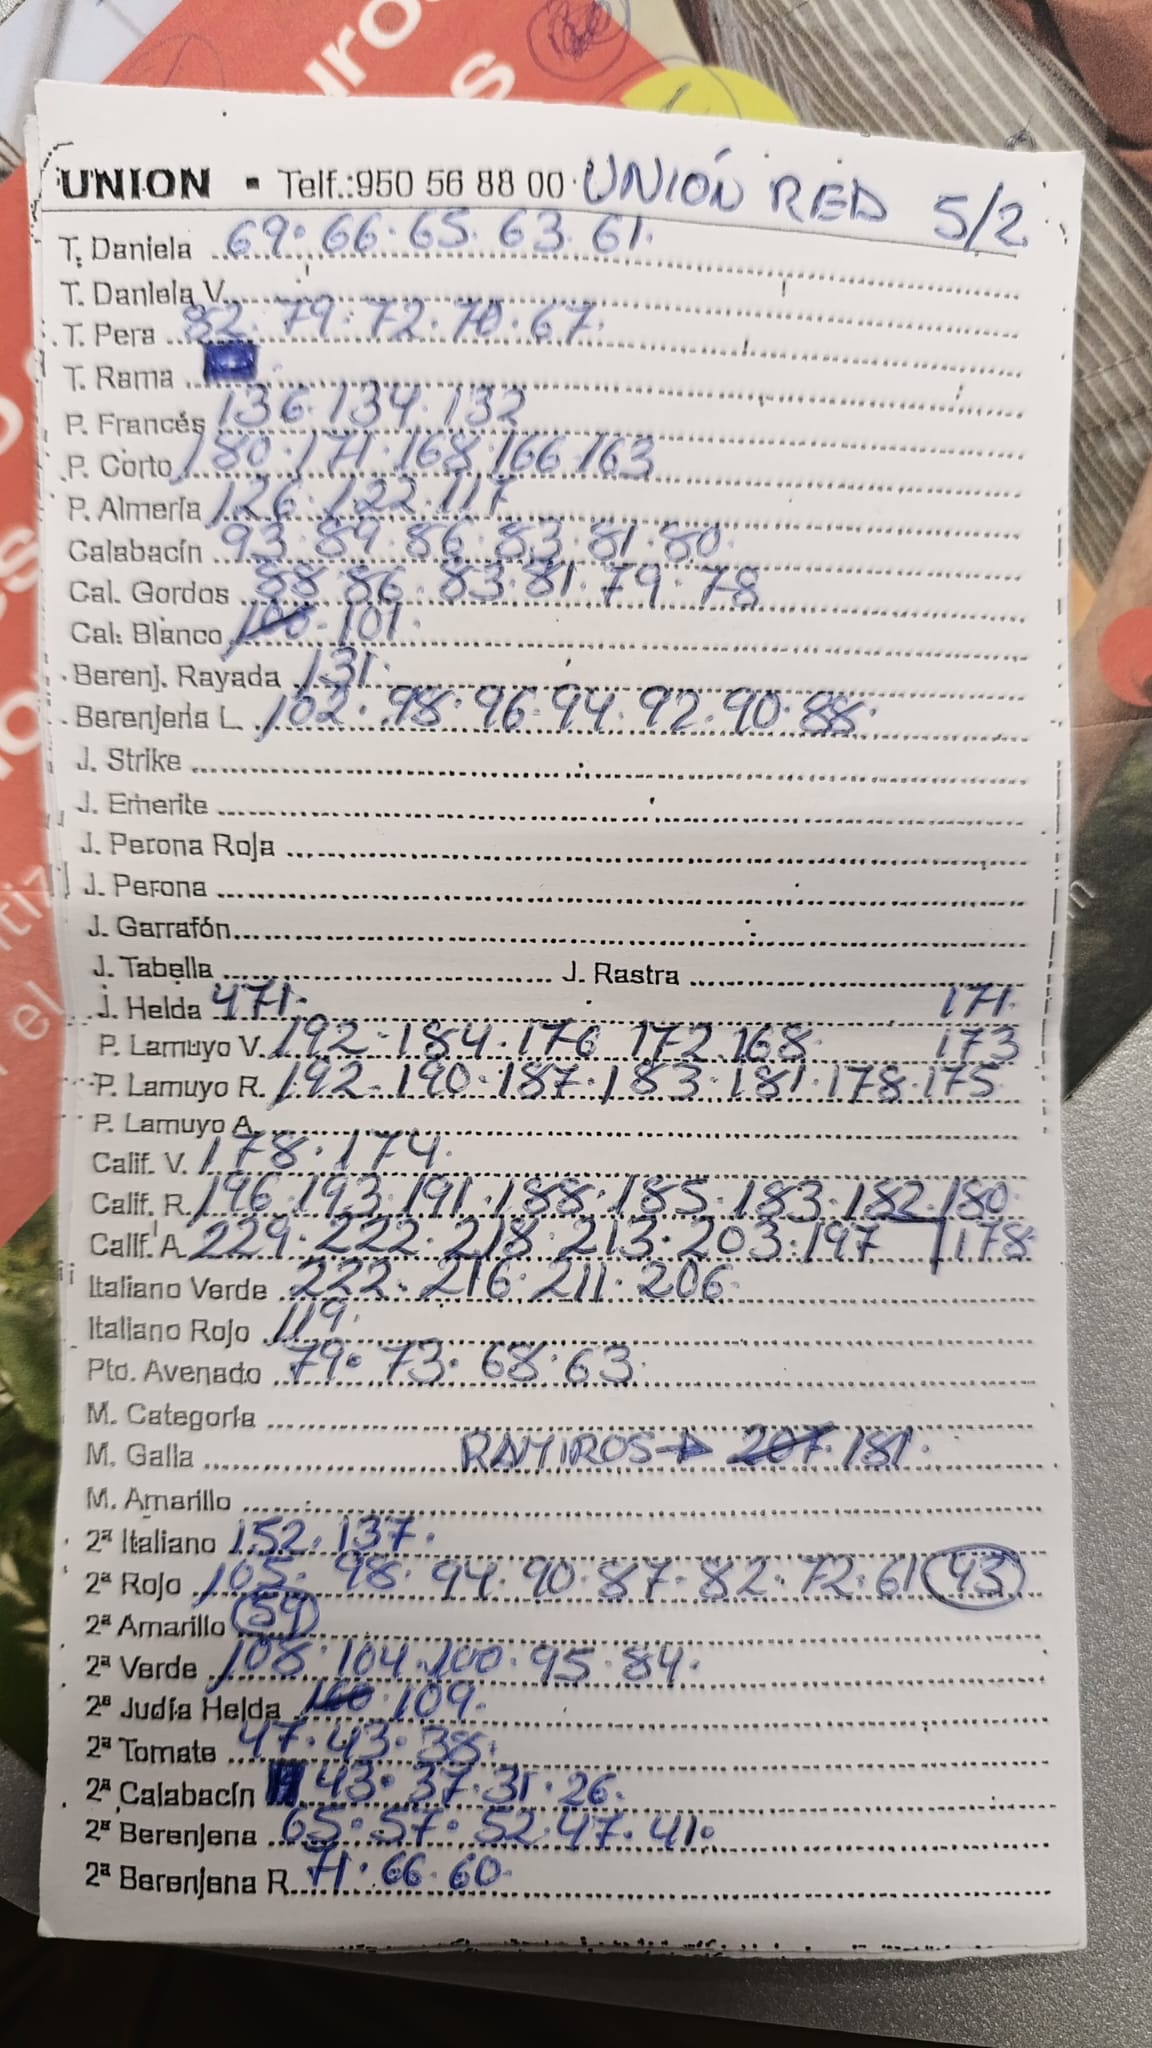 UNION ▪ Telf.:950 56 88 00 UNIÓN RED 5/2
T. Daniela 69. 66. 65. 63. 61.
T. Daniela V.
T. Pera 82. 79. 72. 70. 67.
T. Rama
P. Francés 136. 134. 132
P. Corto 180. 171. 168. 166. 163
P. Almería 126. 122. 117
Calabacín 93. 89. 86. 83. 81. 80.
Cal. Gordos 88 86. 83. 81. 79. 78
Cal. Blanco 100. 101.
Berenj. Rayada 131.
Berenjena L. 102. 98. 96. 94. 92. 90. 88.
J. Strike
J. Emerite
J. Perona Roja
J. Perona
J. Garrafón
J. Tabella J. Rastra
J. Helda 471. 171.
P. Lamuyo V. 192. 184. 176 172. 168. 173
P. Lamuyo R. 192. 190. 187. 183. 181. 178. 175
P. Lamuyo A.
Calif. V. 178. 174.
Calif. R. 196. 193. 191. 188. 185. 183. 182. 180.
Calif. A. 229. 222. 218. 213. 203. 197 178
Italiano Verde 222. 216. 211. 206.
Italiano Rojo 119.
Pto. Avenado 79. 73. 68. 63.
M. Categoría
M. Galla RAMIROS → 207. 181.
M. Amarillo
2ª Italiano 152. 137.
2ª Rojo 105. 98. 94. 90. 87. 82. 72. 61 43
2ª Amarillo 54
2ª Verde 108. 104. 100. 95. 84.
2ª Judía Helda 109.
2ª Tomate 47. 43. 38.
2ª Calabacín 43. 37. 31. 26.
2ª Berenjena 65. 57. 52. 47. 41.
2ª Berenjena R. 71. 66. 60.